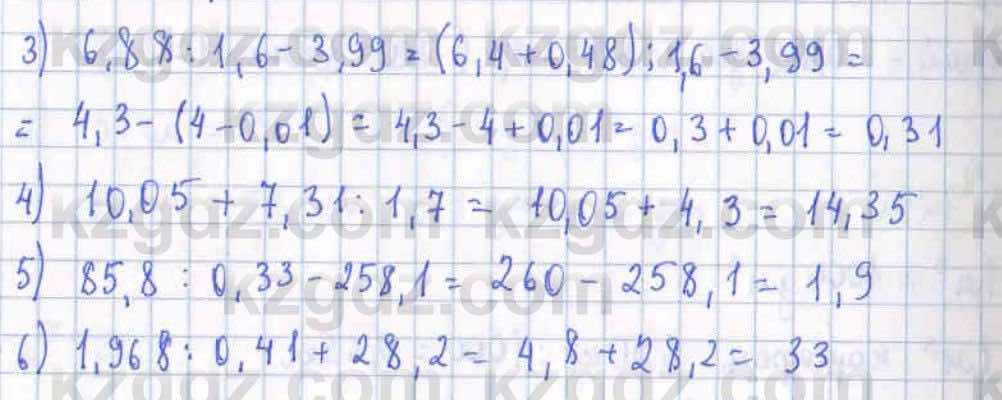 3) 6,88 : 1,6 - 3,99 = (6,4 + 0,48) : 1,6 - 3,99 =
= 4,3 - (4 - 0,01) = 4,3 - 4 + 0,01 = 0,3 + 0,01 = 0,31
4) 10,05 + 7,31 : 1,7 = 10,05 + 4,3 = 14,35
5) 85,8 : 0,33 - 258,1 = 260 - 258,1 = 1,9
6) 1,968 : 0,41 + 28,2 = 4,8 + 28,2 = 33
kzgdz.com